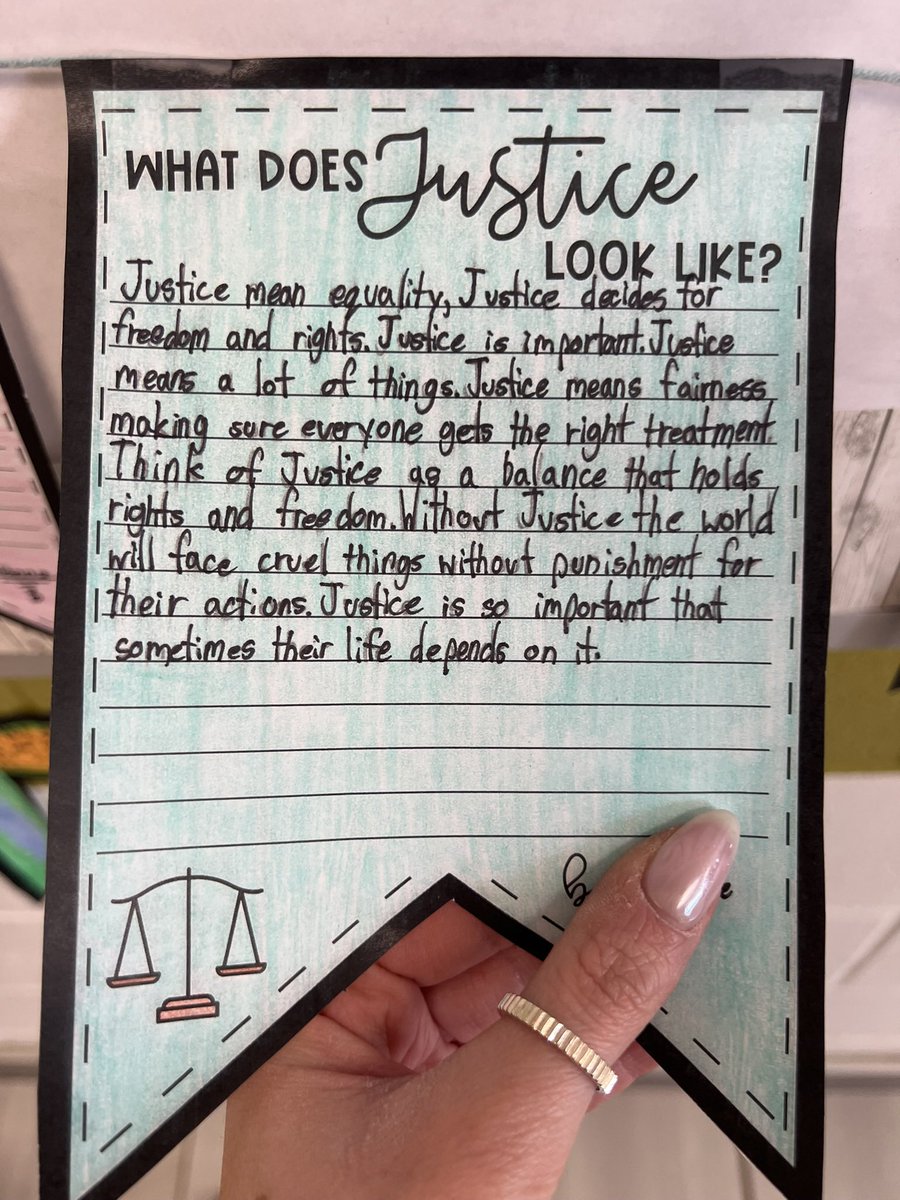 WHAT DOES Justice
LOOK LIKE?
Justice mean equality, Justice decides for
freedom and rights. Justice is important. Justice
means a lot of things. Justice means fairness
making sure everyone gets the right treatment.
Think of Justice as a balance that holds
rights and freedom. Without Justice the world
will face cruel things without punishment for
their actions. Justice is so important that
sometimes their life depends on it.